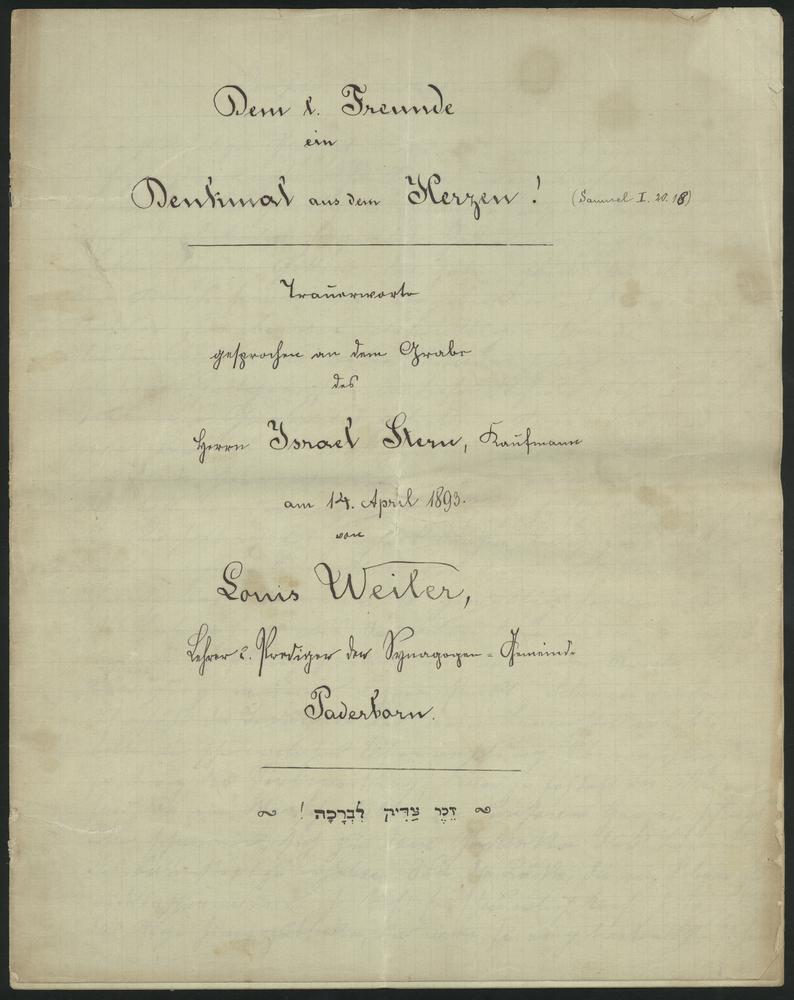 Dem l. Freunde
ein
Denkmal aus dem Herzen! (Samuel I. 20. 18)
Trauerworte
gesprochen an dem Grabe
des
Herrn Israel Stern, Kaufmann
am 14. April 1893.
von
Louis Weiler,
Lehrer u. Prediger der Synagogen-Gemeinde
Paderborn.
זֵכֶר צַדִּיק לִבְרָכָה!